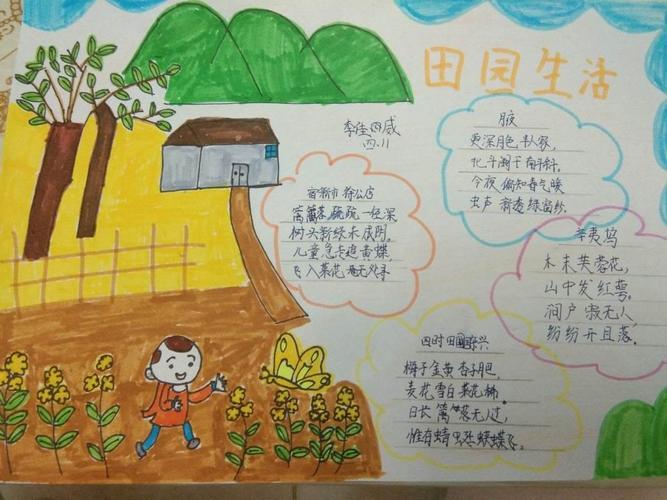 田园生活
李佳四咸
四.11
宿新市徐公店
篱落疏疏一径深
树头新绿未成阴,
儿童急走追黄蝶,
飞入菜花无处寻
夜
更深月色半人家,
北斗阑干南斗斜.
今夜偏知春气暖
虫声新透绿窗纱.
辛夷坞
木末芙蓉花,
山中发红萼,
涧户寂无人,
纷纷开且落.
四时田园杂兴
梅子金黄杏子肥
麦花雪白菜花稀.
日长篱落无人过,
惟有蜻蜓蛱蝶飞.